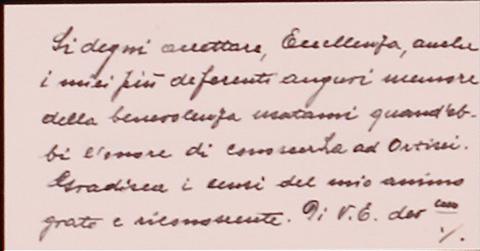 Si degni accettare, Eccellenza, anche
i miei più deferenti auguri memore
della benevolenza usatami quand'eb-
bi l'onore di conoscerLa ad Ortisei.
Gradisca i sensi del mio animo
grato e riconoscente. Di V. E. dev mo